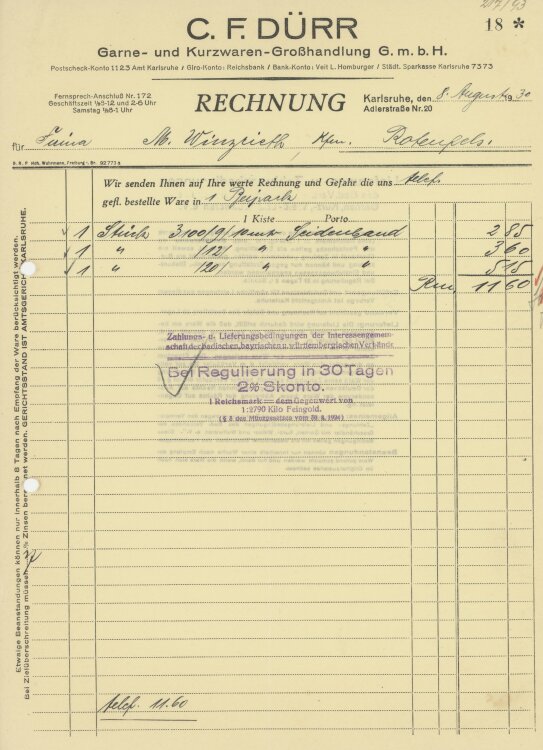 217/93
C. F. DÜRR
18 *
Garne- und Kurzwaren-Großhandlung G. m. b. H.
Postscheck-Konto 1123 Amt Karlsruhe / Giro-Konto: Reichsbank / Bank-Konto: Veit L. Homburger / Städt. Sparkasse Karlsruhe 7373
Fernsprech-Anschluß Nr. 172
Geschäftszeit ½8-12 und 2-6 Uhr
Samstag ½8-1 Uhr
RECHNUNG
Karlsruhe, den 8. August 1930
Adlerstraße Nr. 20
für Firma M. Winzrieth, Kfm. Rotenfels.
Wir senden Ihnen auf Ihre werte Rechnung und Gefahr die uns telef.
gefl. bestellte Ware in 1
1 Kiste Porto
1 Stück 3100/9/10 mtr Seidenband 2 85
1 " /12/ " " 3 60
1 " 120/ " " 5 15
Rm 11 60
Zahlungs- u. Lieferungsbedingungen der Interessengemein-
schaft der badischen, bayrischen u. württembergischen Verbände
Bei Regulierung in 30 Tagen
2% Skonto.
1 Reichsmark = dem Gegenwert von
1:2790 Kilo Feingold.
(§ 3 des Münzgesetzes vom 30. 8. 1924)
telef. 11.60
Etwaige Beanstandungen können nur innerhalb 8 Tagen nach Empfang der Ware berücksichtigt werden.
Bei Zielüberschreitung müssen % Zinsen berechnet werden. GERICHTSSTAND IST AMTSGERICHT KARLSRUHE.